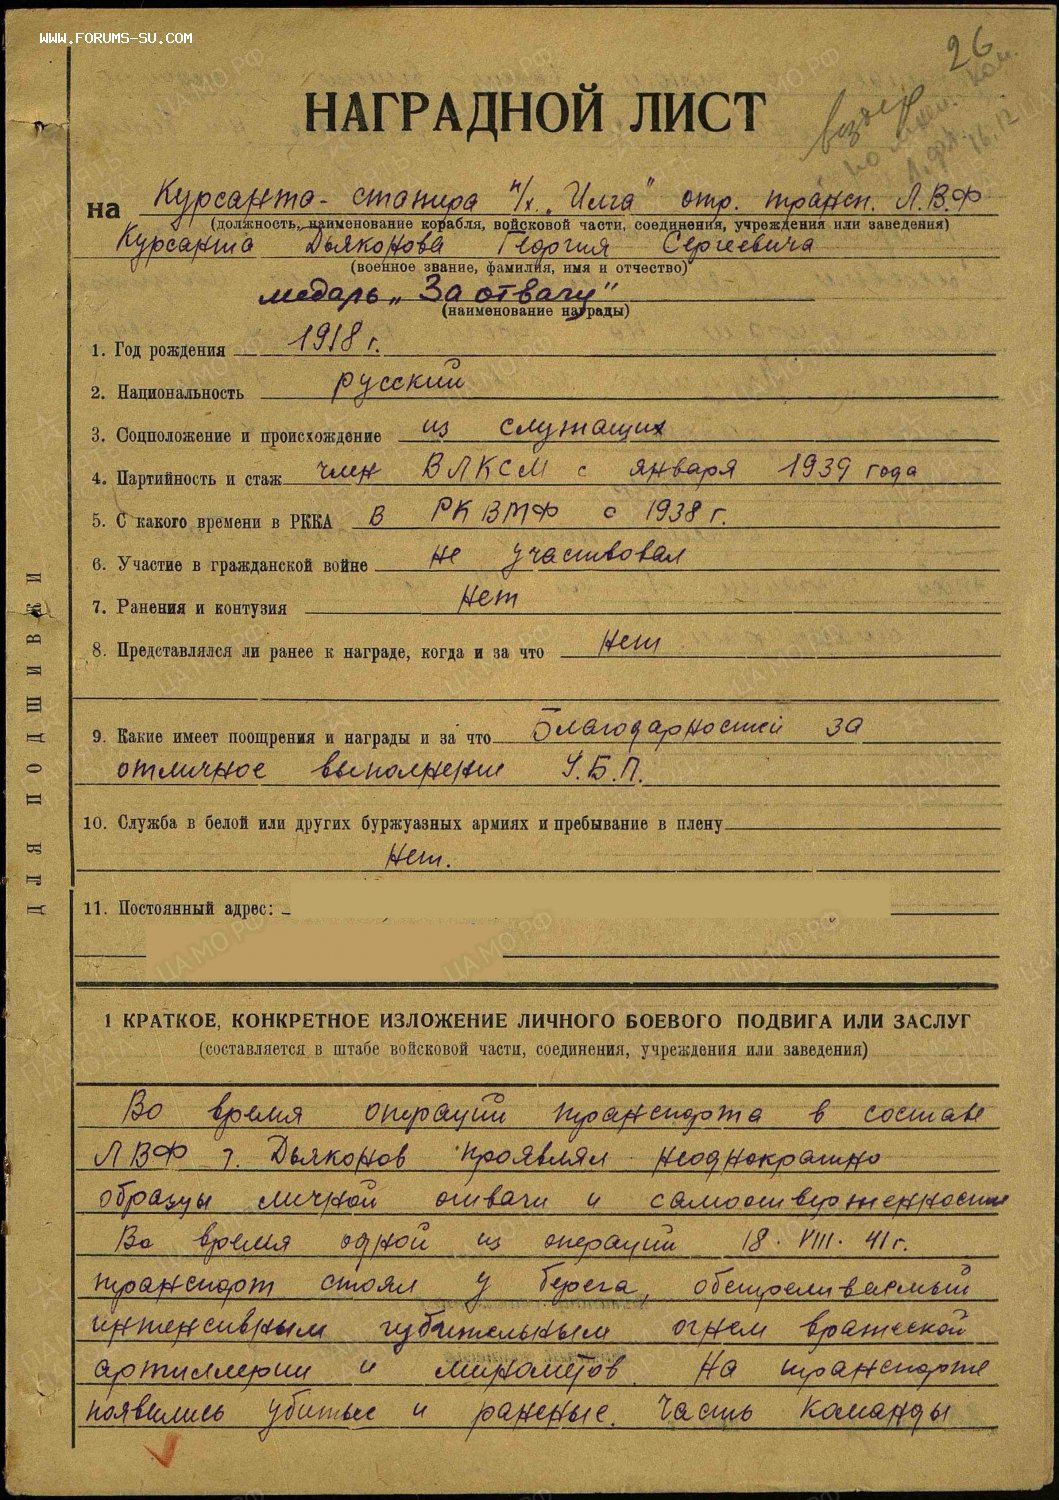 WWW.FORUMS-SU.COM
26
НАГРАДНОЙ ЛИСТ
на Курсанта-стажера п/х "Илга" отр. трансп. Л.В.Ф.
(должность, наименование корабля, войсковой части, соединения, учреждения или заведения)
Курсанта Дьяконова Георгия Сергеевича
(военное звание, фамилия, имя и отчество)
медаль "За отвагу"
(наименование награды)
1. Год рождения 1918 г.
2. Национальность русский
3. Соцположение и происхождение из служащих
4. Партийность и стаж член ВЛКСМ с января 1939 года
5. С какого времени в РККА в РКВМФ с 1938 г.
6. Участие в гражданской войне не участвовал
7. Ранения и контузия Нет
8. Представлялся ли ранее к награде, когда и за что Нет
9. Какие имеет поощрения и награды и за что Благодарностей за
отличное выполнение У.Б.П.
10. Служба в белой или других буржуазных армиях и пребывание в плену
Нет.
11. Постоянный адрес:
ДЛЯ ПОДШИВКИ
1 КРАТКОЕ, КОНКРЕТНОЕ ИЗЛОЖЕНИЕ ЛИЧНОГО БОЕВОГО ПОДВИГА ИЛИ ЗАСЛУГ
(составляется в штабе войсковой части, соединения, учреждения или заведения)
Во время операций транспорта в составе
ЛВФ т. Дьяконов проявлял неоднократно
образцы личной отваги и самоотверженности
Во время одной из операций 18. VIII. 41 г.
транспорт стоял у берега, обстреливаемый
интенсивным губительным огнем вражеской
артиллерии и минометов. На транспорте
появились убитые и раненые. Часть команды